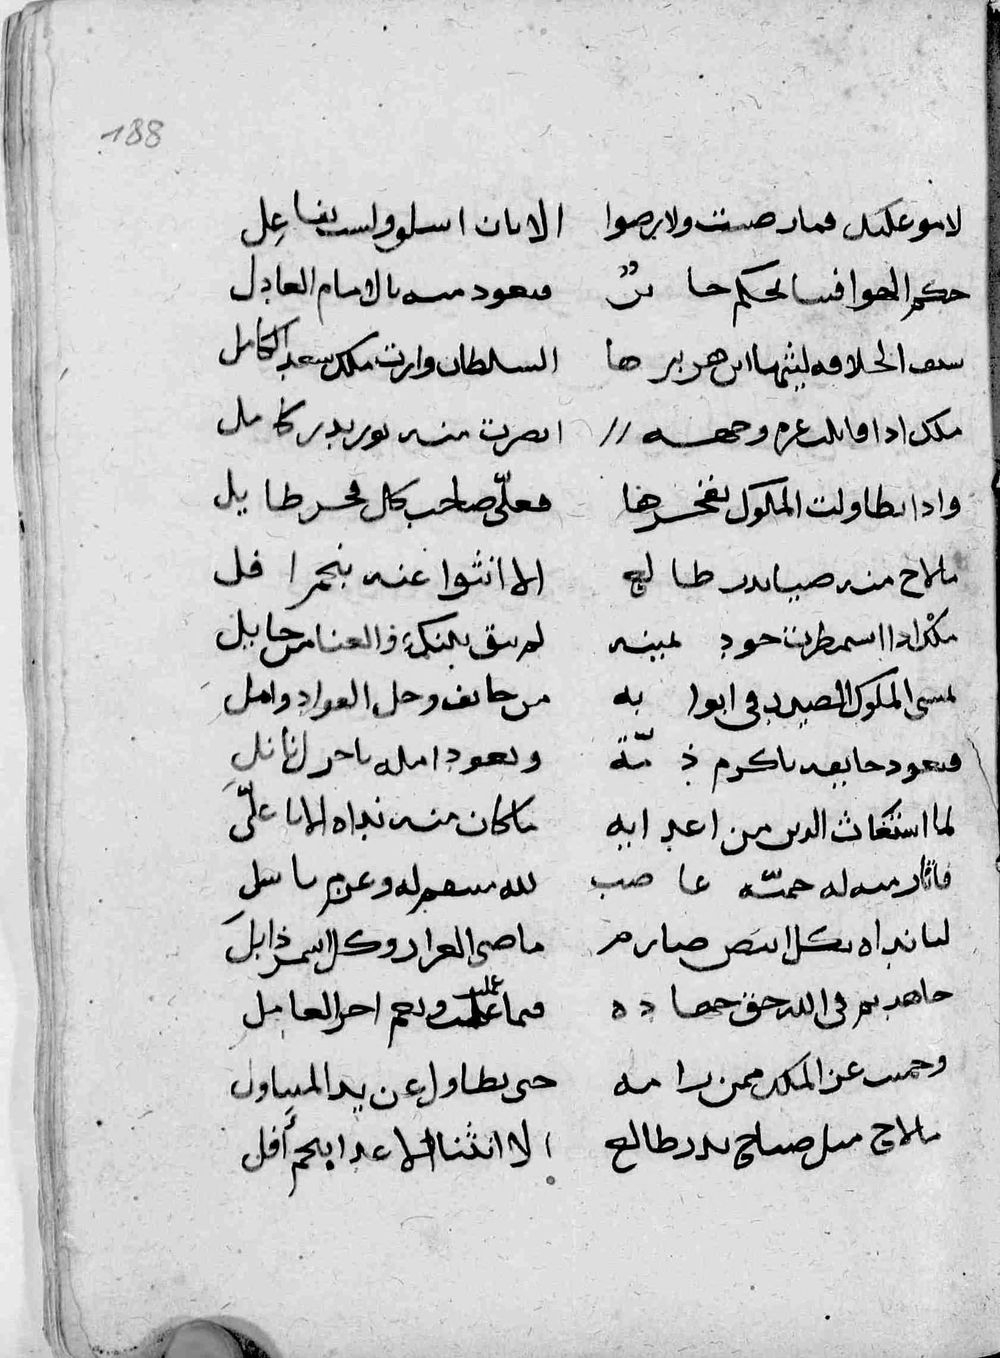 188
لامو عليك فما رضيت ولا يرضوا الا بان اسلو ولست بفاعل
حكم الهوا فينا بحكم جائر فنعوذ منه بالامام العادل
سيف الخلافة ليثها ابن هزبرها السلطان وارث ملك سعد الكامل
ملك اذا قابلت غرة وجهه ابصرت منه نور بدر كامل
واذا تطاولت الملوك بفخرها فعلي صاحب كل فخر طايل
مالاح منه صيا بدر طالع الا انثوا عنه بنجم افل
ملك اذا استمطرت جود يمينه لم يبق بينك والغنا من حايل
يمسي الملوك الصيد في ابوابه من خائف وجل الفواد وامل
فيعود خايفه باكرم ذمة ويعود امله باجر نائل
لما استغاث الدين من اعدايه ما كان منه نداه الا يا علي
فاثار منه له حمية غاضب لله منتصر له وعزم باسل
لبا نداه بكل ابيض صارم ماضي الغرار وكل اسمر ذابل
جاهدتهم في الله حق جهاده فيما عليك ونعم اجر العامل
وحميت عن الملك ممن رامه حتى تطاول عن يد المتناول
مالاح مثل صباح بدر طالع الا انثنا الاعدا بنجم أفل